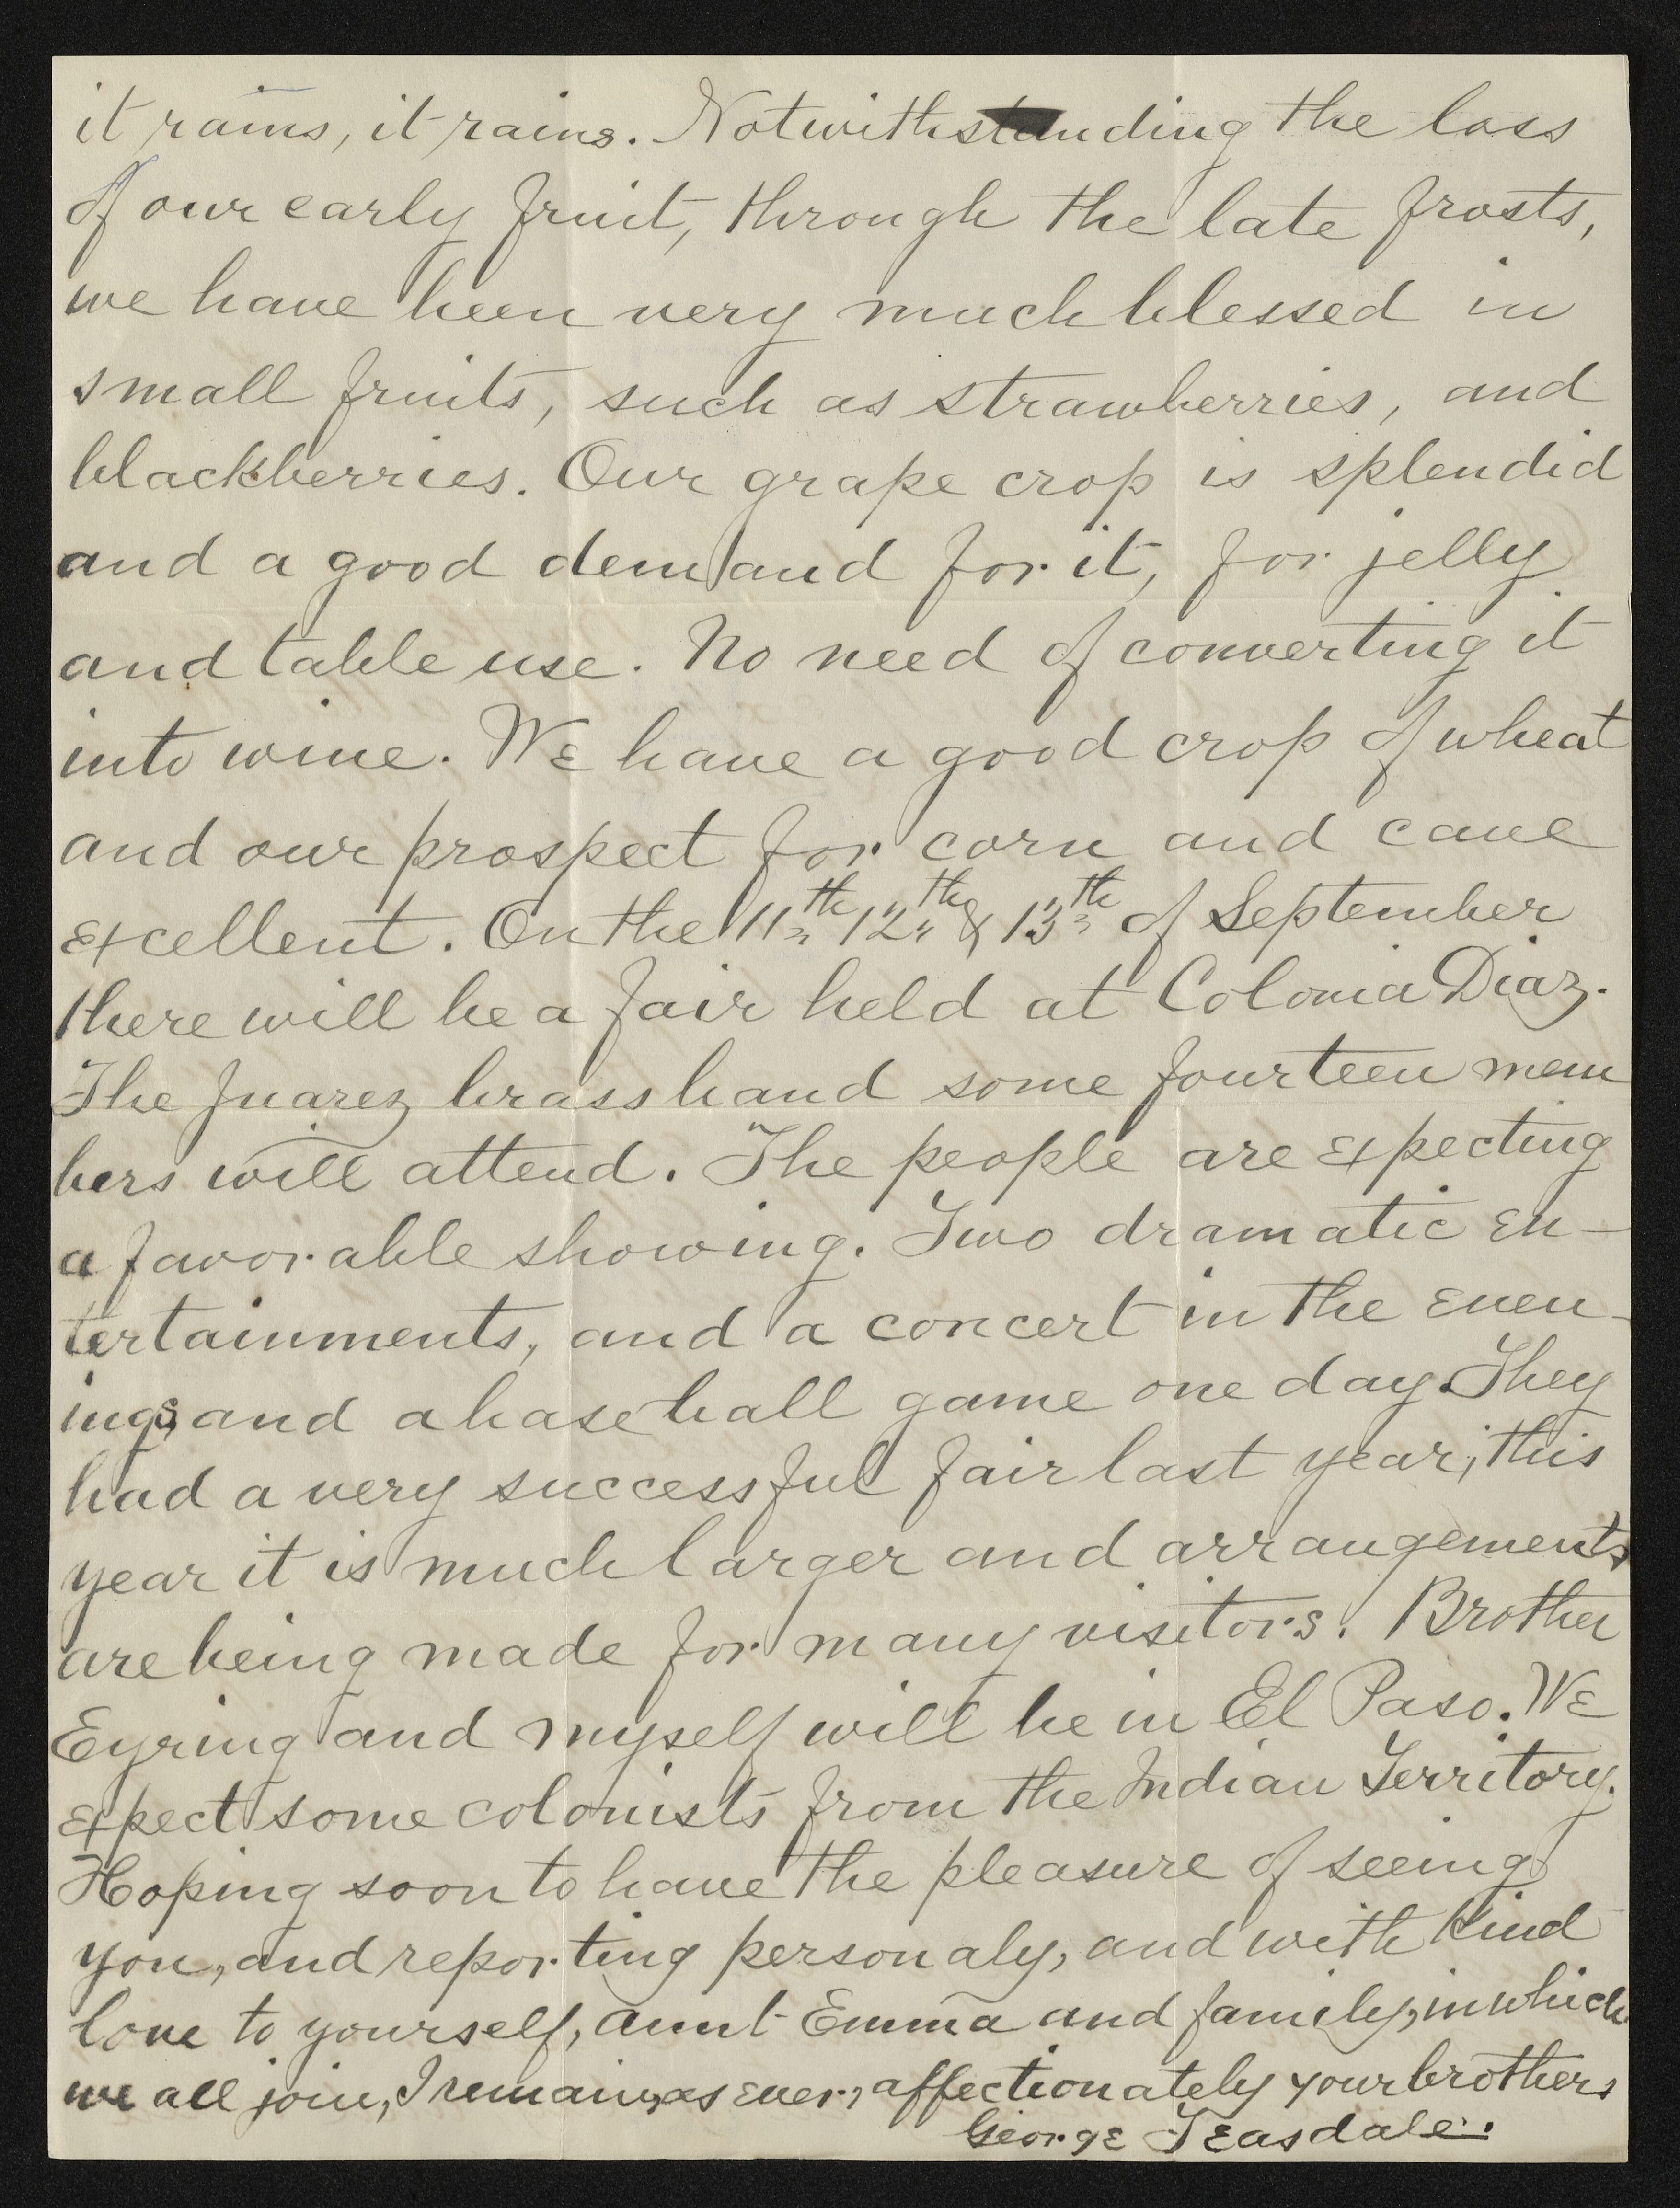 it rains, it rains. Notwithstanding the loss
of our early fruit, through the late frosts,
we have been very much blessed in
small fruits, such as strawberries, and
blackberries. Our grape crop is splendid
and a good demand for it, for jelly
and table use. No need of converting it
into wine. We have a good crop of wheat
and our prospect for corn and cane
excellent. On the 11th 12th & 13th of September
there will be a fair held at Colonia Diaz.
The Juarez brass band some fourteen mem
bers will attend. The people are expecting
a favorable showing. Two dramatic en-
tertainments, and a concert in the even-
ings, and a base ball game one day. They
had a very successful fair last year; this
year it is much larger and arrangements
are being made for many visitors. Brother
Eyring and myself will be in El Paso. We
expect some colonists from the Indian Territory.
Hoping soon to have the pleasure of seeing
you, and reporting personaly, and with kind
love to yourself, aunt Emma and family, in which
we all join, I remain, as ever, affectionately your brothers
George Teasdale.